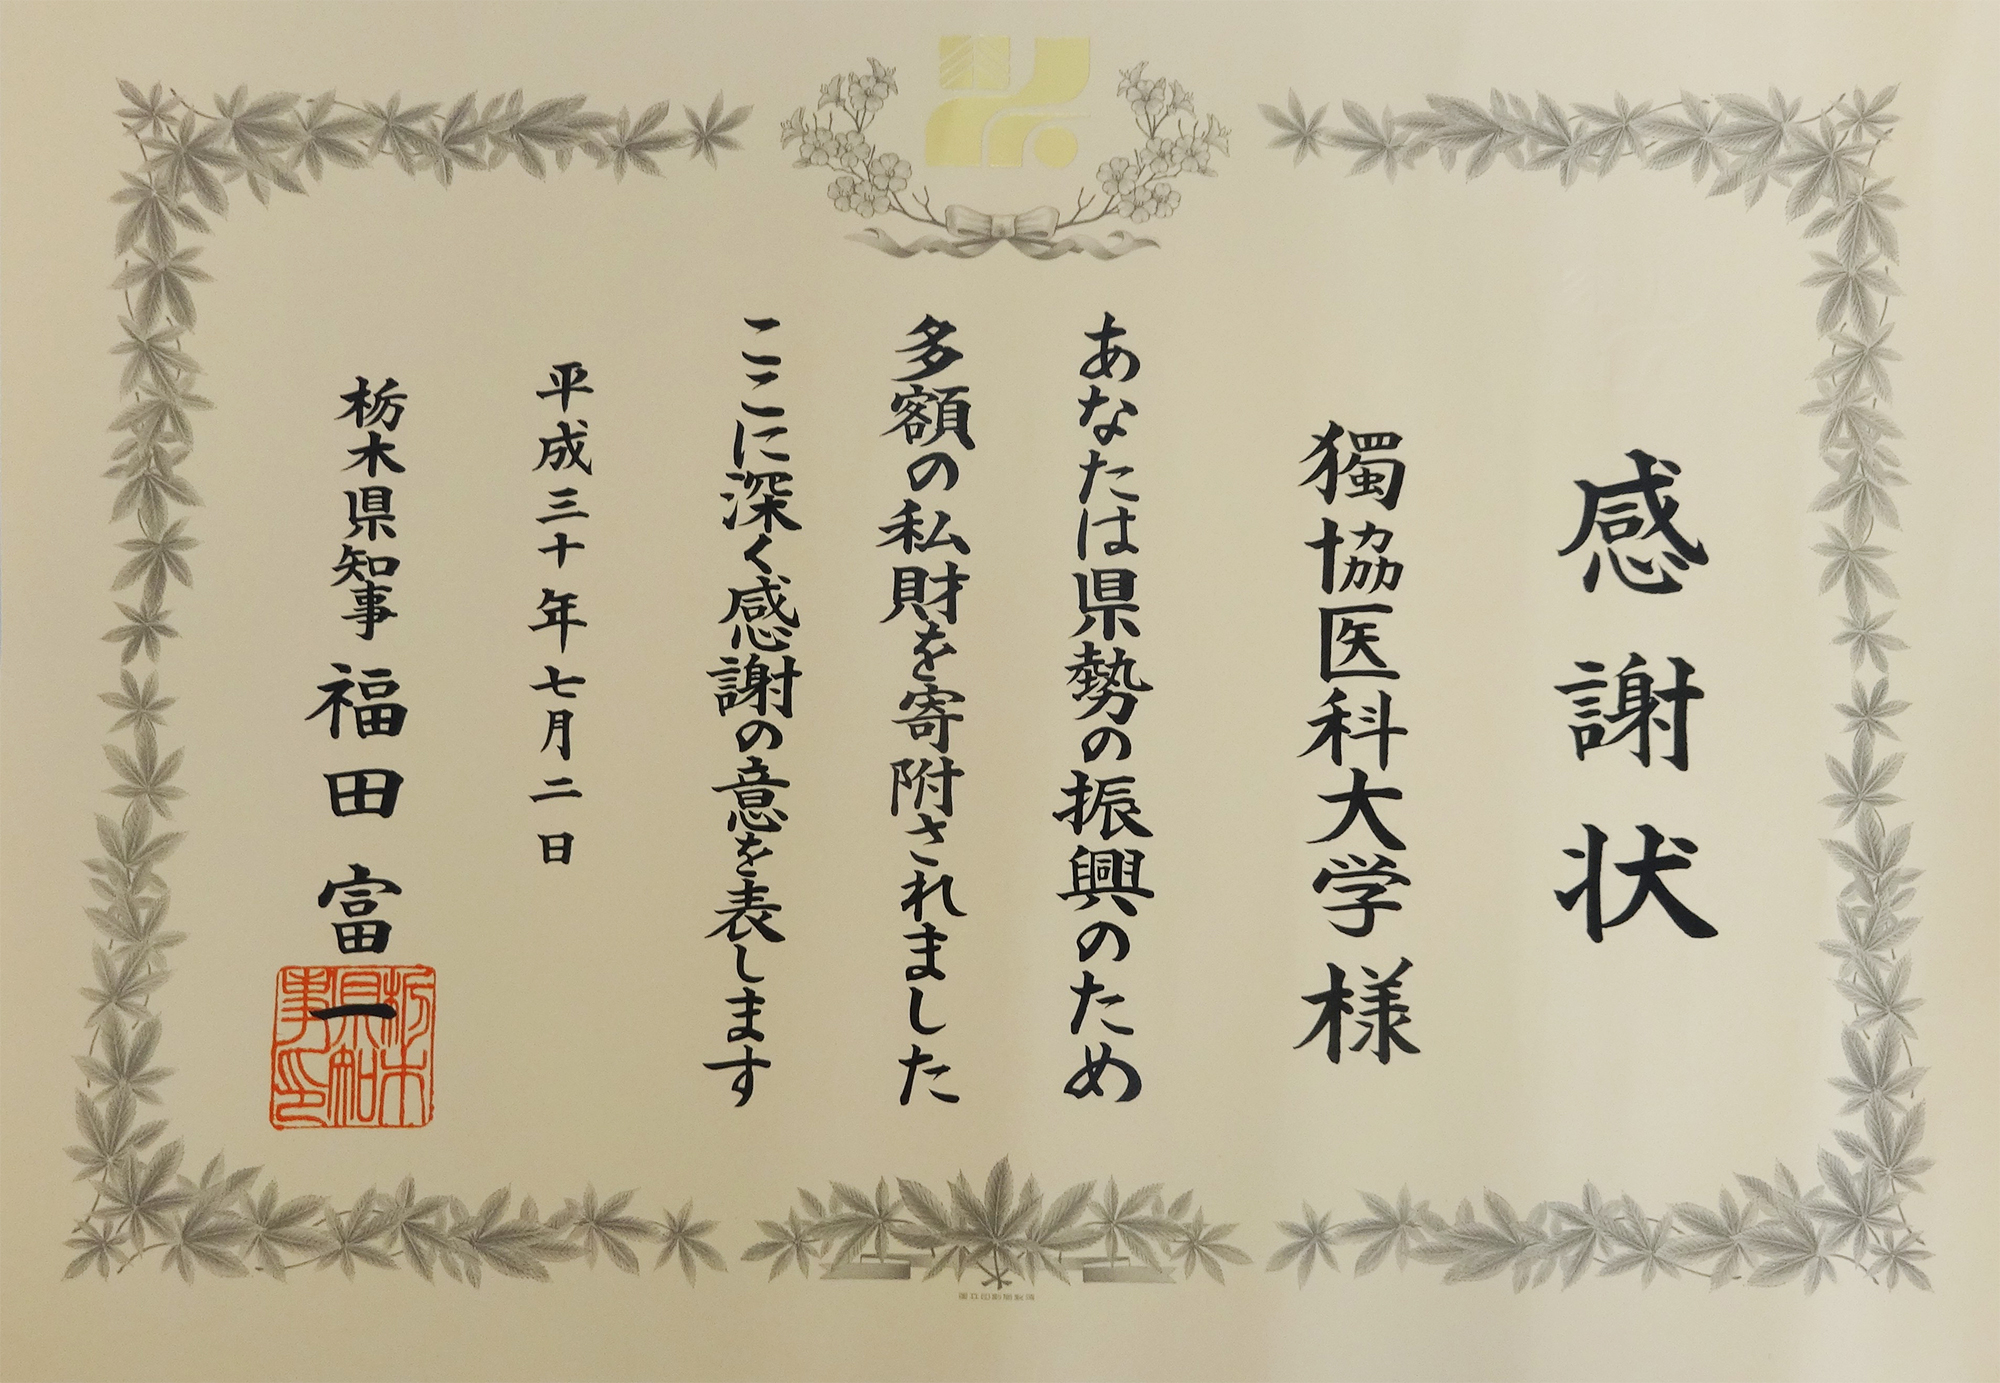 感謝状
獨協医科大学様
あなたは県勢の振興のため
多額の私財を寄附されました
ここに深く感謝の意を表します
平成三十年七月二日
栃木県知事 福田富一
栃木県知事印